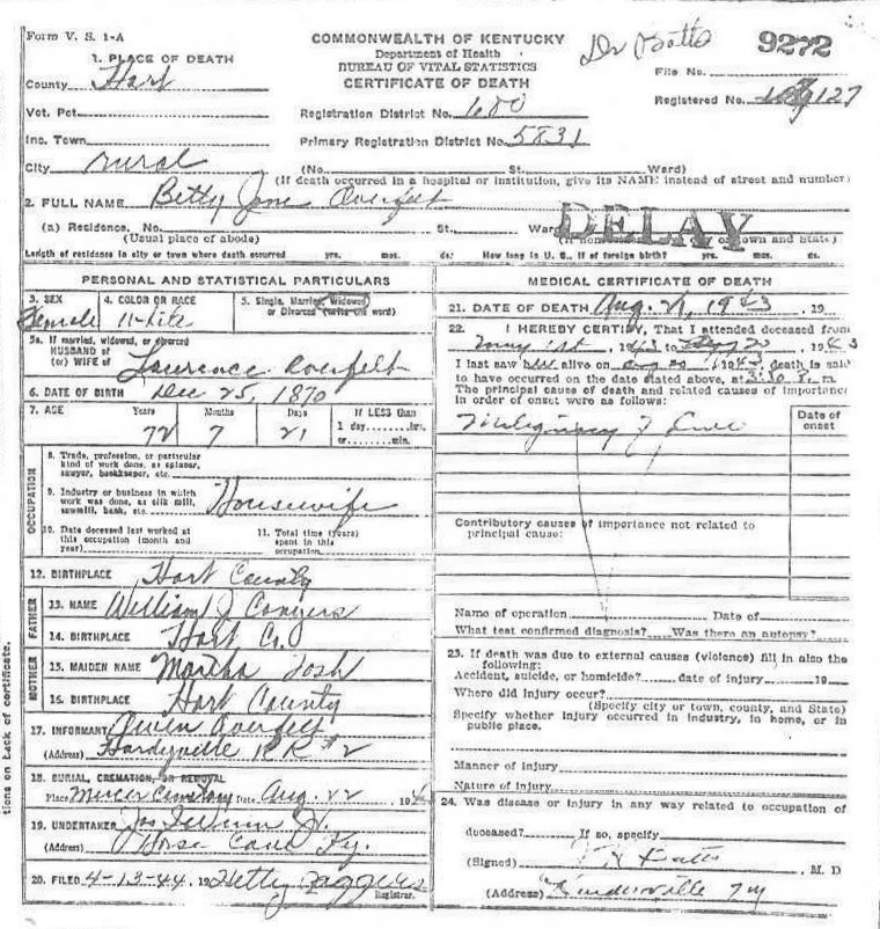 Form V. S. 1-A
COMMONWEALTH OF KENTUCKY
Department of Health
BUREAU OF VITAL STATISTICS
CERTIFICATE OF DEATH
Dr Botts
9272
File No.
Registered No. 127
1. PLACE OF DEATH
County Hart
Vot. Pct.
Registration District No. 680
Inc. Town
Primary Registration District No. 5831
City rural
(No. St. Ward)
(If death occurred in a hospital or institution, give its NAME instead of street and number)
2. FULL NAME Betty Jane Overfelt
(a) Residence. No. St., Ward
DELAY
(Usual place of abode)
town and State)
Length of residence in city or town where death occurred yrs. mos. ds. How long in U. S., if of foreign birth? yrs. mos. ds.
PERSONAL AND STATISTICAL PARTICULARS
3. SEX
Female
4. COLOR OR RACE
White
5. Single, Married, Widowed
or Divorced (write the word)
5a. If married, widowed, or divorced
HUSBAND of
(or) WIFE of Lawrence Overfelt
6. DATE OF BIRTH Dec 25, 1870
7. AGE Years Months Days If LESS than
72 7 21 1 day hrs.
or min.
OCCUPATION
8. Trade, profession, or particular
kind of work done, as spinner,
sawyer, bookkeeper, etc.
9. Industry or business in which
work was done, as silk mill,
sawmill, bank, etc. Housewife
10. Date deceased last worked at
this occupation (month and
year)
11. Total time (years)
spent in this
occupation
12. BIRTHPLACE Hart County
FATHER
13. NAME William J Conyers
14. BIRTHPLACE Hart Co.
MOTHER
15. MAIDEN NAME Martha Josh
16. BIRTHPLACE Hart County
17. INFORMANT Owen Overfelt
(Address) Hardyville RR #2
18. BURIAL, CREMATION, OR REMOVAL
Place Mercer Cemetery Date Aug. 22 19
19. UNDERTAKER Jos
(Address) Horse Cave Ky.
20. FILED 4-13-44, 19 Hetty Jaggers
Registrar.
MEDICAL CERTIFICATE OF DEATH
21. DATE OF DEATH Aug. 21, 1943, 19
22. I HEREBY CERTIFY, That I attended deceased from
May 1st, 1943 to 20, 1943
I last saw her alive on Aug 20, 1943, death is said
to have occurred on the date stated above, at 3:30 m.
The principal cause of death and related causes of importance
in order of onset were as follows:
Date of
onset
Malignancy of
Contributory causes of importance not related to
principal cause:
Name of operation Date of
What test confirmed diagnosis? Was there an autopsy?
23. If death was due to external causes (violence) fill in also the
following:
Accident, suicide, or homicide? date of injury 19
Where did injury occur?
(Specify city or town, county, and State)
Specify whether injury occurred in industry, in home, or in
public place.
Manner of injury
Nature of injury
24. Was disease or injury in any way related to occupation of
deceased? If so, specify
(Signed) Botts, M. D
(Address)
tions on back of certificate.